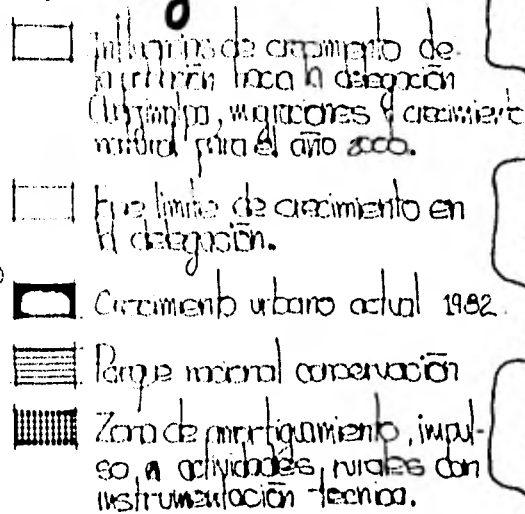 Influencias de crecimiento de
población hacia la delegación
Cuajimalpa, migraciones y crecimiento
natural para el año 2000.
límite de crecimiento en
la delegación.
Crecimiento urbano actual 1982
Parque nacional conservación
Zona de amortiguamiento, impul-
so a actividades rurales con
instrumentación tecnica.